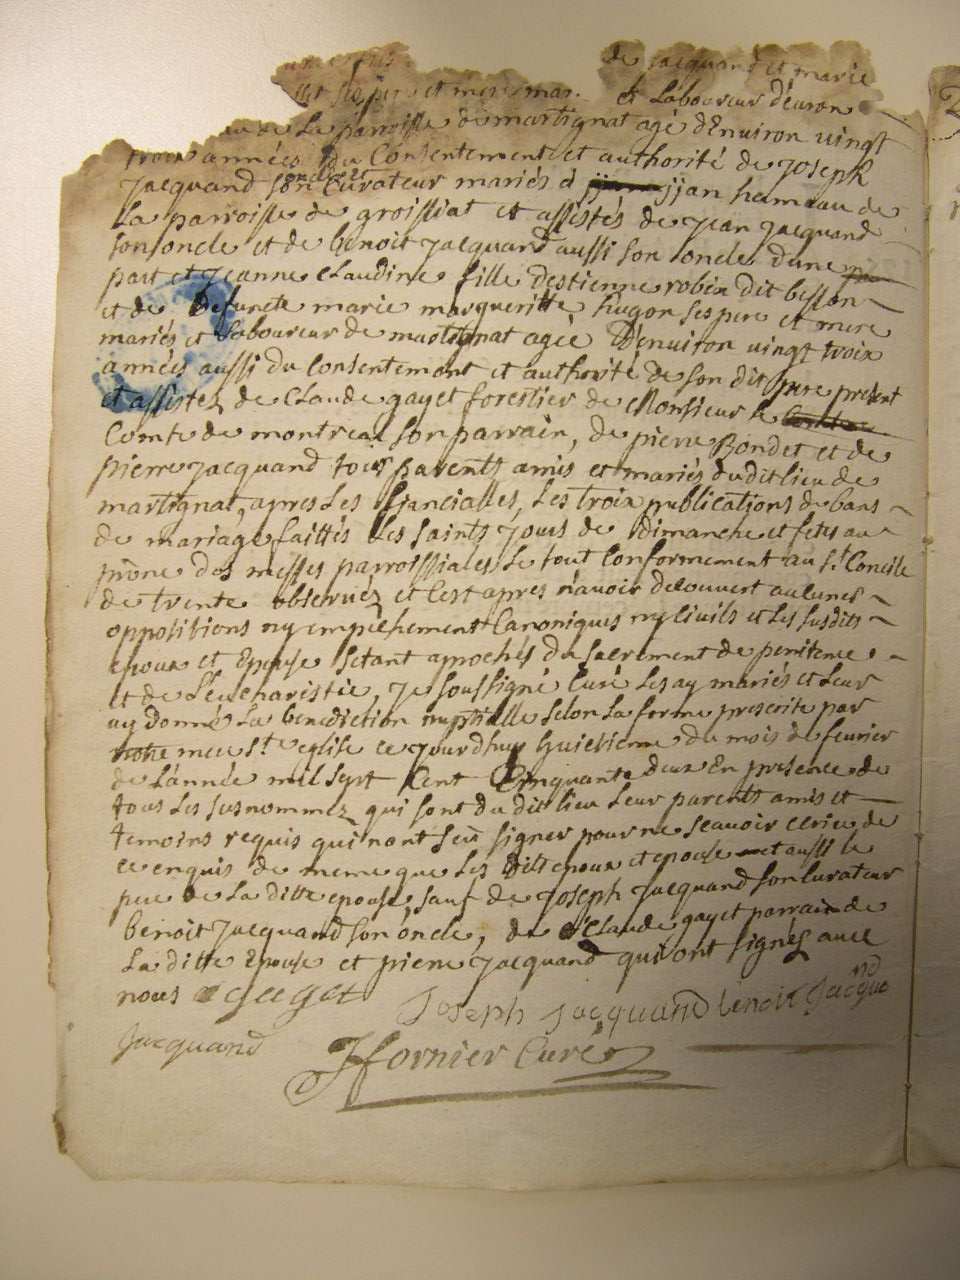 de jacquand et marie
et sés pere et mere mar. et Laboureur d'euron
de La parroisse de martignat agé d'Enuiron vingt
trois années du Consentement et authorité de Joseph
Jacquand son Curateur mariés à ijan hameau de
La parroisse de groissiat et assistés de Jean Jacquand
son oncle et de benoit Jacquand aussi son oncle dune
part et Jeanne Claudine fille d'estienne robin dit besson
et de Defuncte marie marguerite hugon ses pere et mere
mariés et Laboureur de martignat agée D'enuiron vingt trois
années aussi du Consentement et authorité de son dit pere présent
et assistez de Claude gayet forestier de Monsieur le
Comte de montreal son parrain, de pierre Bondet et de
pierre Jacquand tous parents amis et mariés du dit lieu de
martignat, apres Les fiancialles, Les troix publications de bans
de mariage faittés Les saints Jours de dimanche et fetes au
prône des messes parroissiales Le tout Conformement au St. Concile
de trente observéz et C'est apres n'auoir décounert aucunes
oppositions ny empêchement Canoniques ny Ciuils et Les susdits
epoux et Epouse s'etant aprochés du sacrement de penitence
et de L'eucharistie, Je soussigné Curé Les ay mariés et Leur
ay donnés La benediction nuptialle selon La forme prescrite par
mere Ste. eglise ce Jourdhuy huictieme du mois de feurier
de L'année mil sept Cent Cinquante deux En presence de
tous Les susnommez qui sont du dit lieu Leur parents amis et
temoins requis qui n'ont seû signer pour ne scauoir ecrire de
ce enquis de meme que Les dits epoux et epouse et aussi le
pere de La ditte epouse, sauf de Joseph Jacquand son Curateur
benoit Jacquand son oncle, de Claude gayet parrain de
La ditte Epouse et pierre Jacquand qui ont signés auec
nous geeget Joseph Jacquand benoit Jacquand
Jacquand Hfornier Curé